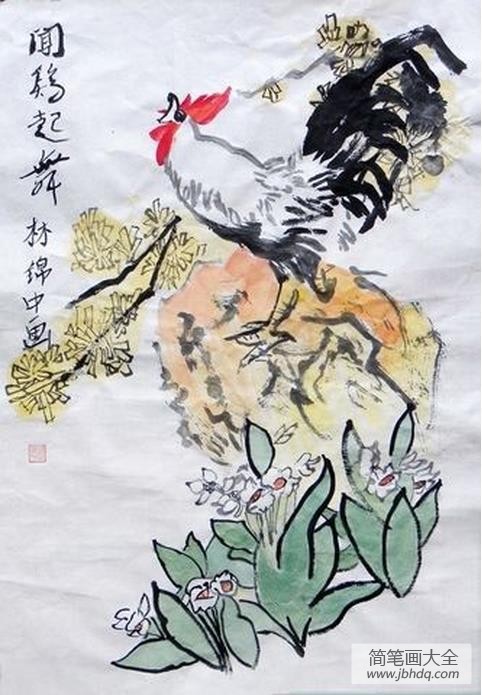 闻鸡起舞
林绵中画
简笔画大全
www.jbhdq.com